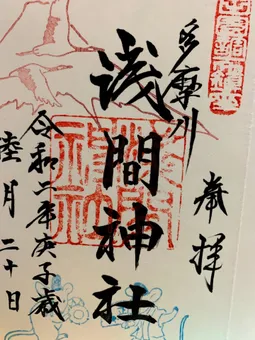 奉拝
多摩川
浅間神社
令和二年庚子歳
睦月二十日